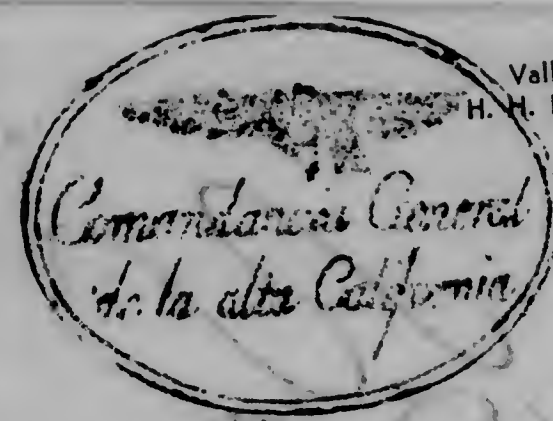 Vall
H. H.
Comandancia General
de la alta California